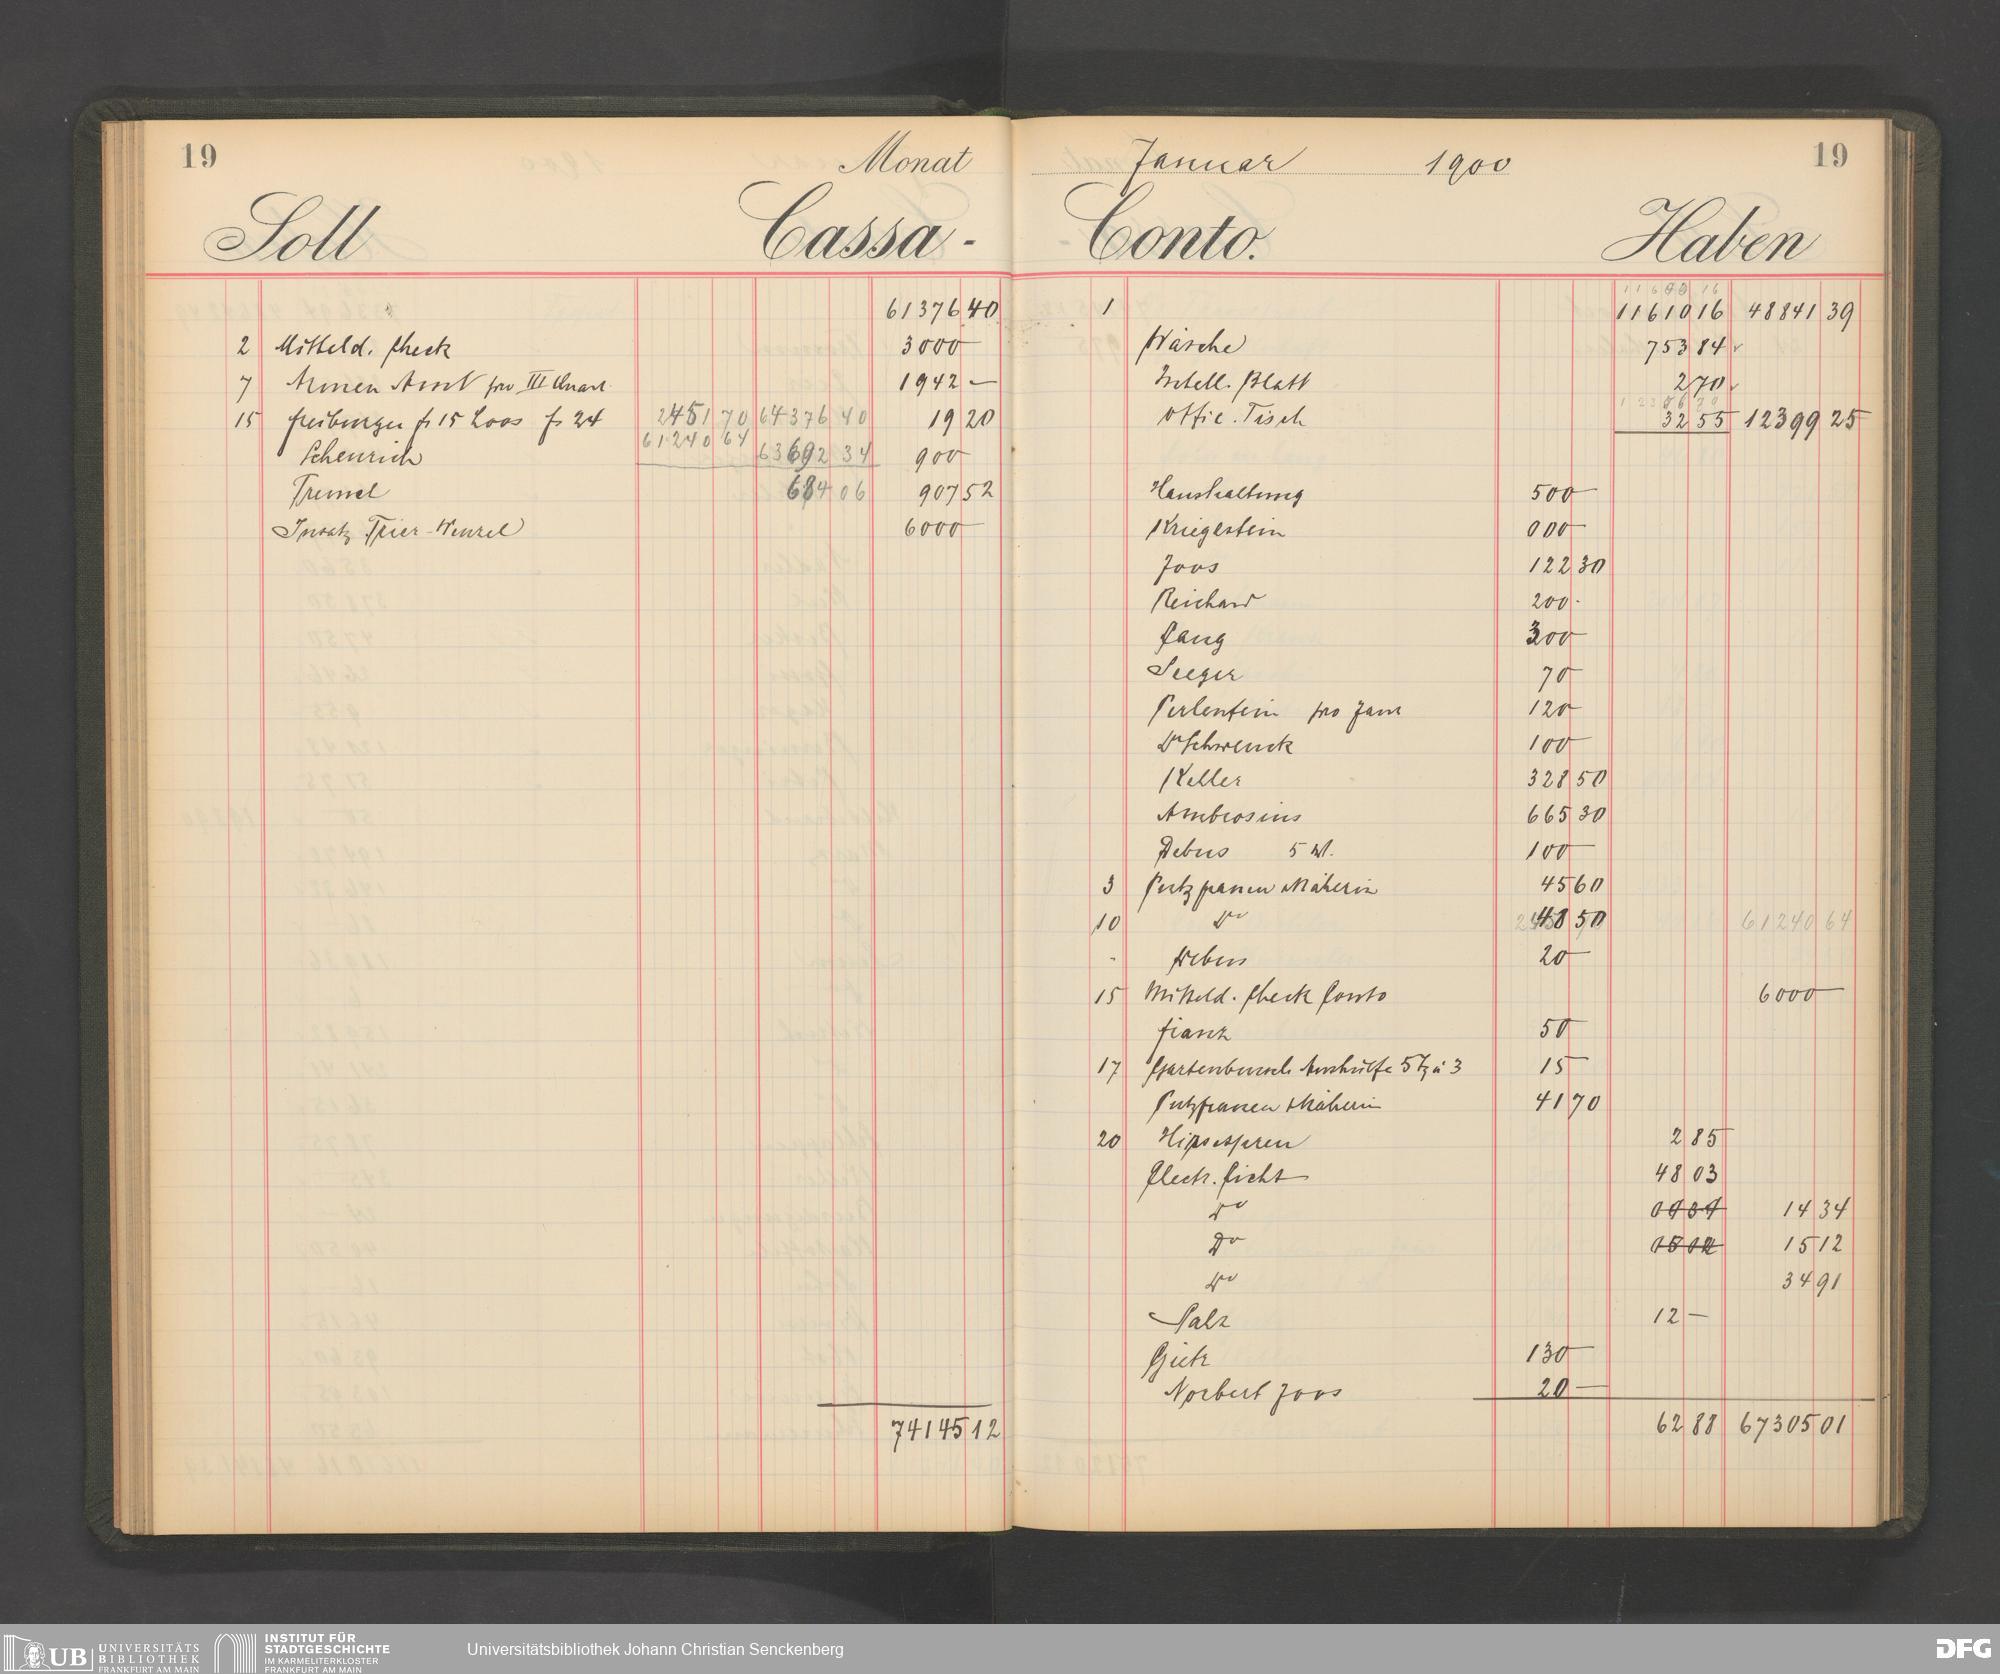 19 Monat
Soll Cassa -
61376 40
2 Mitteld. Check 3000 —
7 Armen Amt pro III Quart. 1942 —
15 freiburger fs 15 Loos fs 24 2451 70 64376 40 19 20
61240 64
Scheurich 63692 34 900 —
684 06 907 52
Insatz Trier-Wenzel 6000 —
74145 12
Januar 1900 19
Conto. Haben
11600 16
1 11610 16 48841 39
Wäsche 753 84 ✓
Intell. Blatt 2 70 ✓
Offic. Tisch 32 55 12399 25
Haushaltung 500 —
Kriegestein 000 —
Joos 122 30
Reichard 200 -
Lang 300 —
Seeger 70 —
pro Janr 120 —
Dr Schwenck 100 —
Keller 328 50
Ambrosius 665 30
Debus 5 M. 100 —
3 Putzfrauen Näherin 45 60
10 do 48 50 61240 64
- Debus 20 —
15 Mitteld. Check Conto 6000 —
Franz 50 —
17 Gartenbursch Aushülfe 5 Tg à 3 15 —
Putzfrauen + Näherin 41 70
20 2 85
Electr. Licht 48 03
do 14 34
Do 15 12
do 34 91
Salz 12 —
130 —
Norbert Joos 20 —
62 88 67305 01
UB UNIVERSITÄTS
BIBLIOTHEK
FRANKFURT AM MAIN
INSTITUT FÜR
STADTGESCHICHTE
IM KARMELITERKLOSTER
FRANKFURT AM MAIN
Universitätsbibliothek Johann Christian Senckenberg
DFG